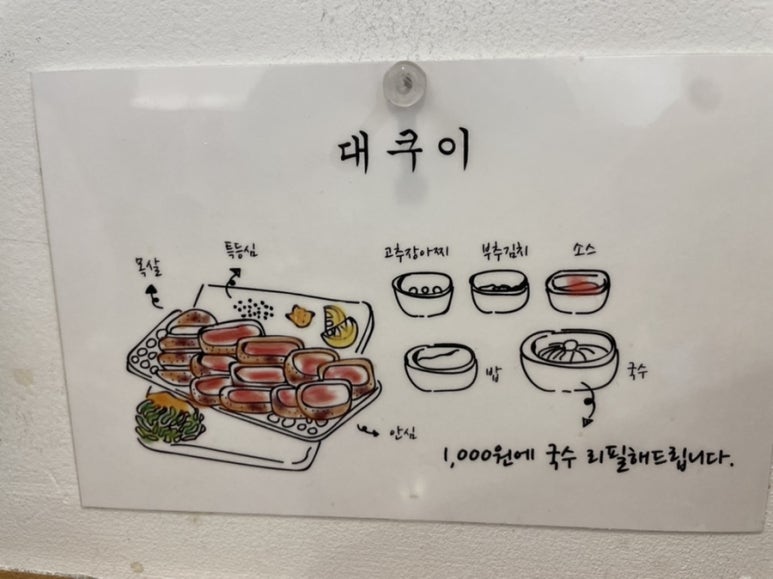 대쿠이
목살
특등심
고추장아찌
부추김치
소스
밥
국수
안심
1,000원에 국수 리필해드립니다.